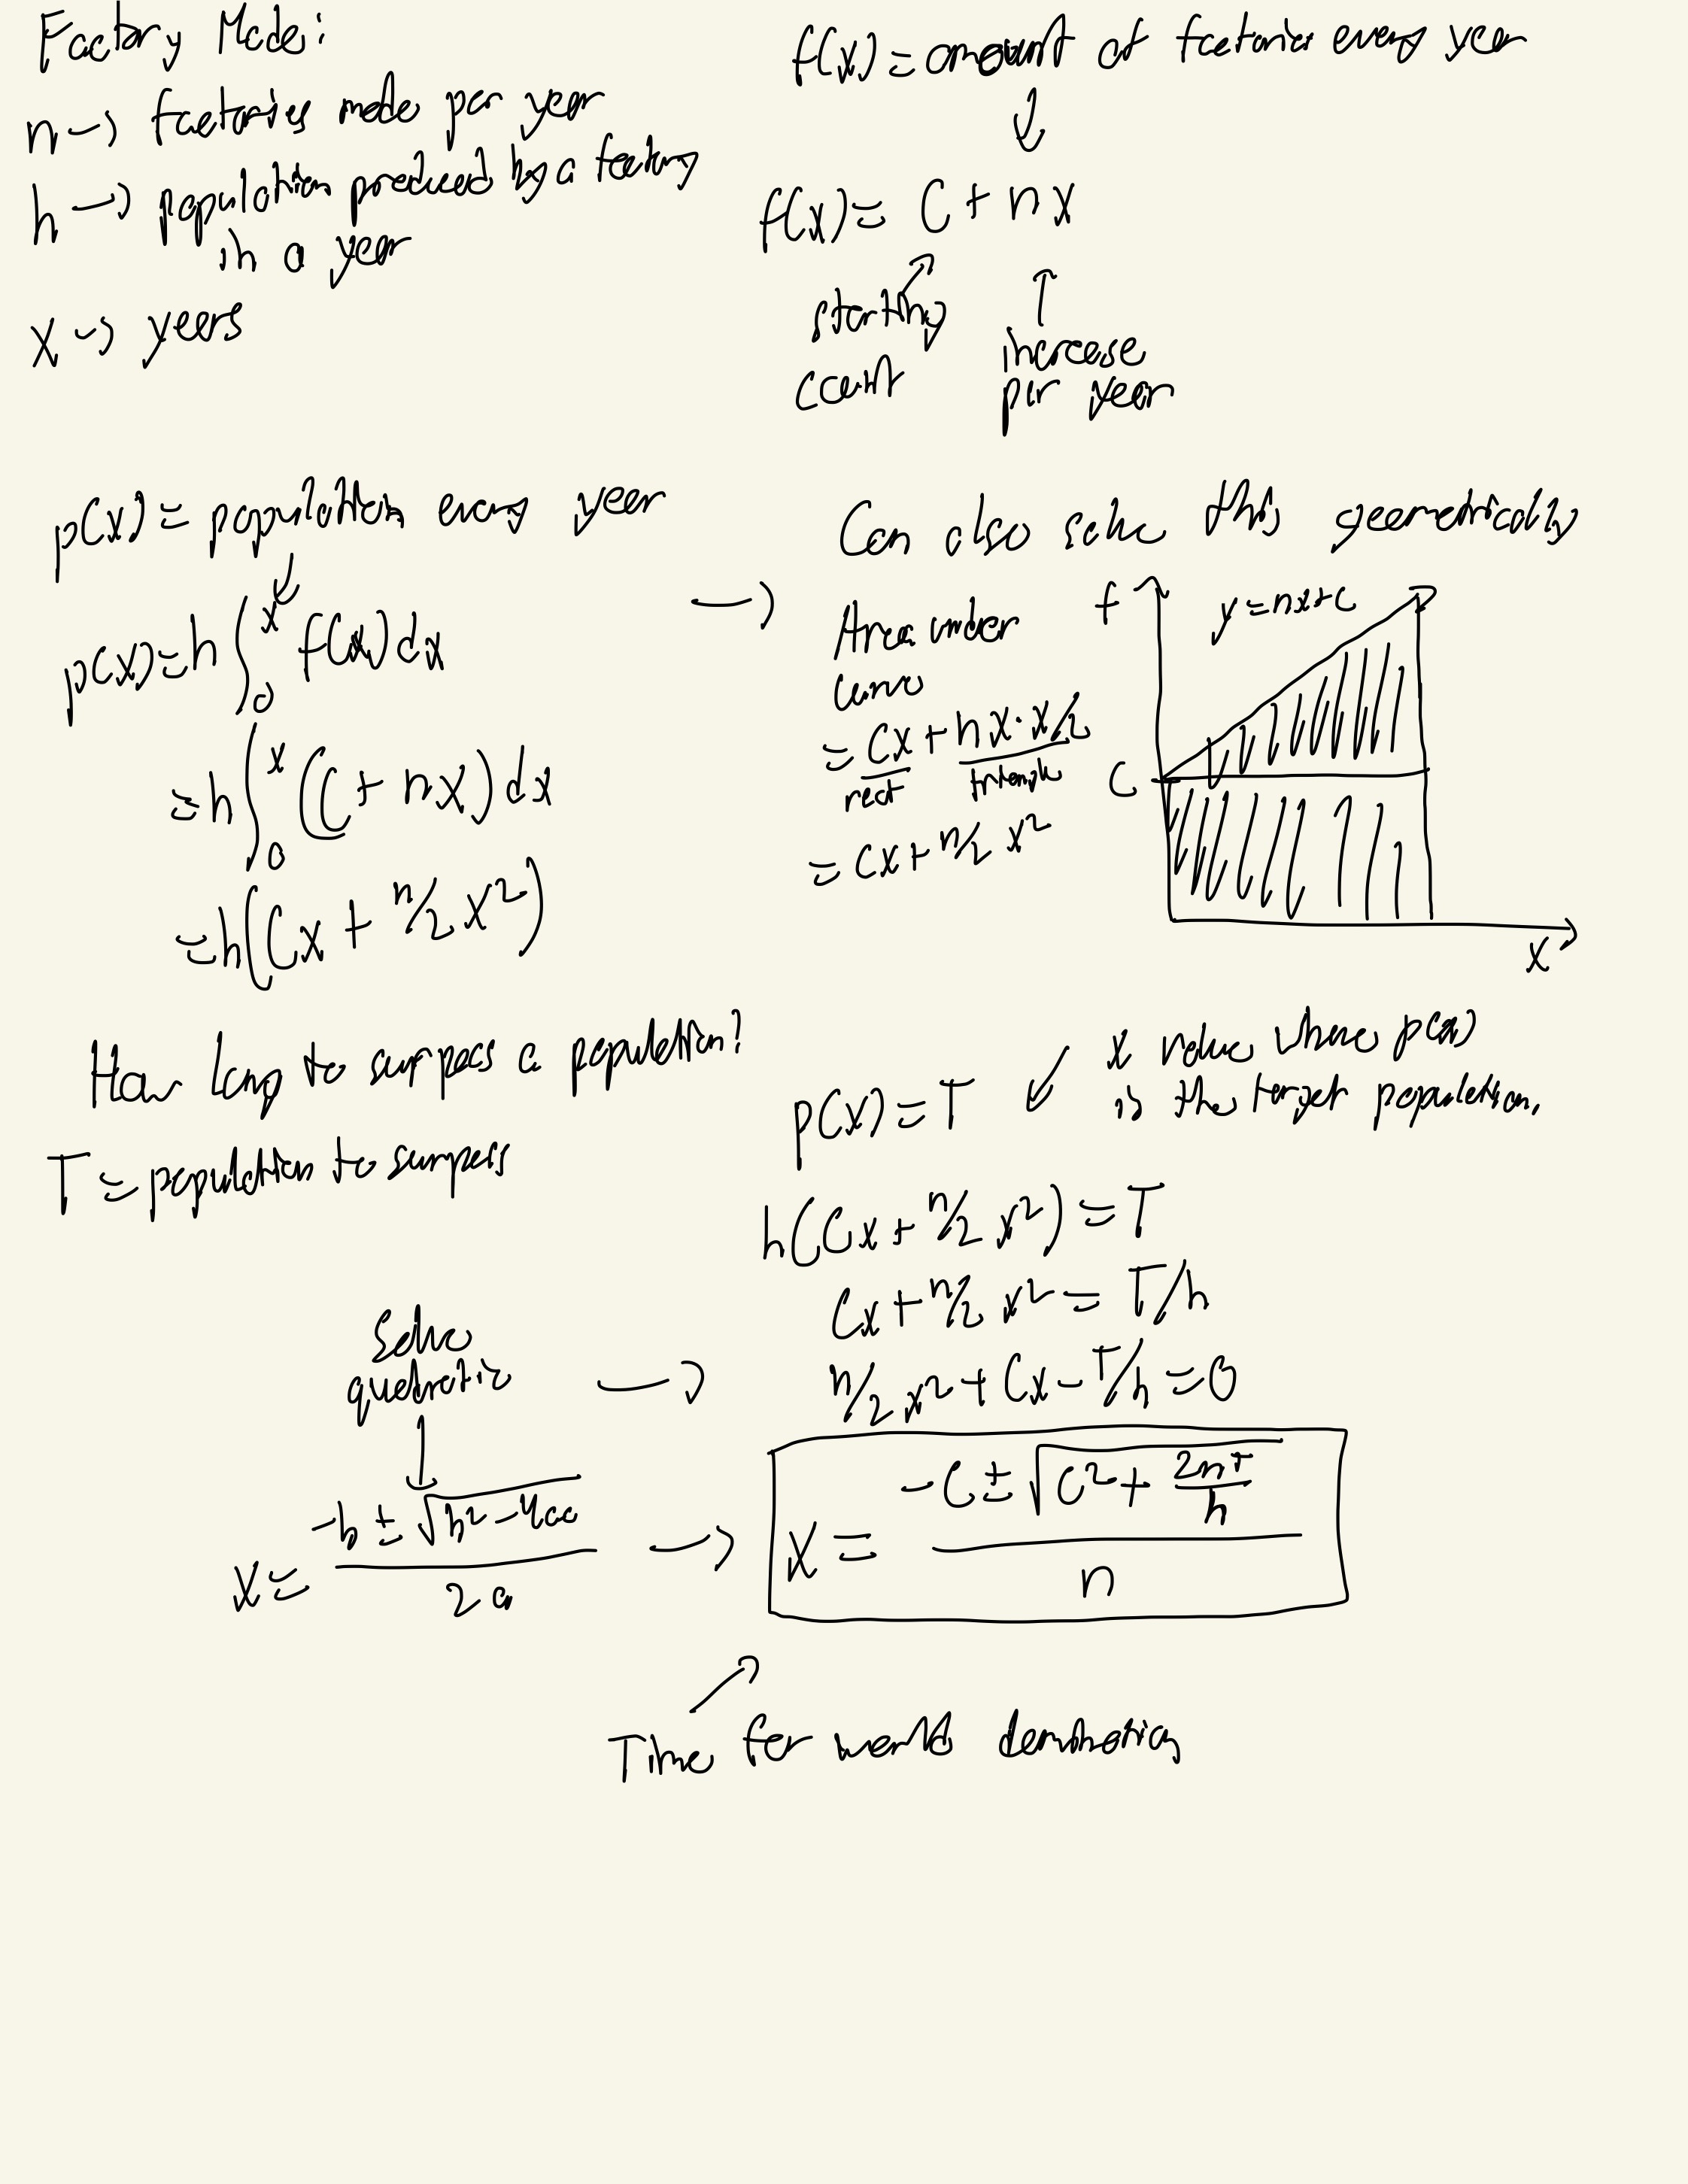 Factory Mode:
n → factories made per year
h → population produced by a factory
in a year
x → years
f(x) = amount of factories every year
f(x) = C + nx
starting
count
increase
per year
p(x) = population every year
p(x) = h ∫₀ˣ f(x) dx
= h ∫₀ˣ (C + nx) dx
= h(Cx + n/2 x²)
→
Can also solve this geometrically
Area under
curve
= Cx + nx · x/2
rect triangle
= Cx + n/2 x²
f
y = nx + C
C
x
How long to surpass a population?
T = population to surpass
p(x) = T
x value where p(x)
is the target population.
h(Cx + n/2 x²) = T
Cx + n/2 x² = T/h
n/2 x² + Cx - T/h = 0
Solve
quadratic →
x = (-b ± √(b² - 4ac)) / 2a →
x = (-C ± √(C² + 2nT/h)) / n
Time for world domination